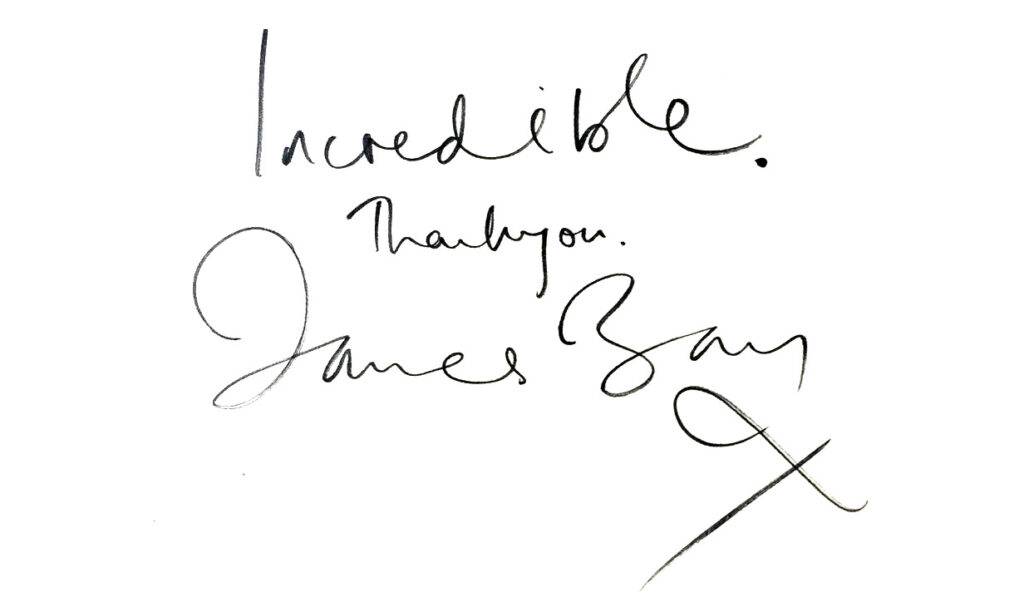 Incredible.
Thankyou.
James Bay
x